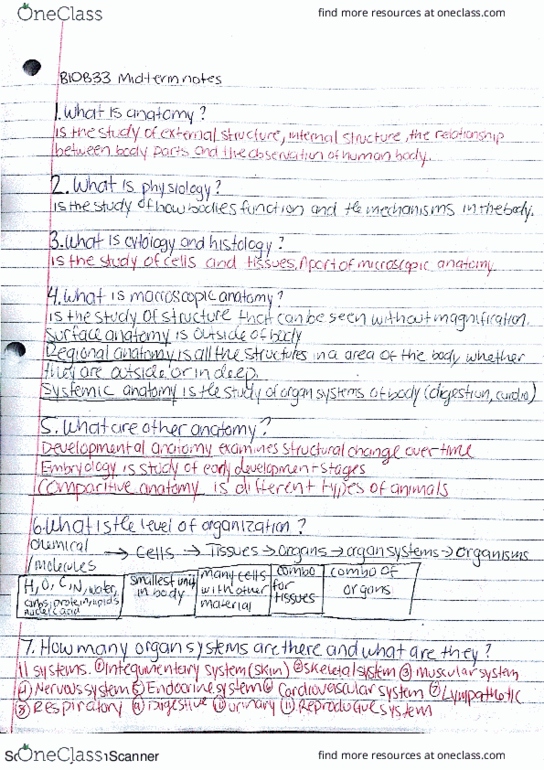 OneClass find more resources at oneclass.com
BIOB33 Midterm notes
1. What is anatomy?
is the study of external structure, internal structure, the relationship
between body parts and the observation of human body.
2. What is physiology?
is the study of how bodies function and the mechanisms in the body.
3. What is cytology and histology?
is the study of cells and tissues. A part of microscopic anatomy.
4. What is macroscopic anatomy?
is the study of structure that can be seen without magnification.
Surface anatomy is outside of body
Regional anatomy is all the structures in a area of the body whether
they are outside or in deep.
Systemic anatomy is the study of organ systems of body (digestion, cardio)
5. What are other anatomy?
Developmental anatomy examines structural change over time
Embryology is study of early development stages
Comparitive anatomy is different types of animals
6. What is the level of organization?
chemical
/molecules → Cells → Tissues → organs → organ systems → organisms
H, O, C, N, water,
carbs, protein, lipids
nucleic acid
smallest unit
in body
many cells
with other
material
combo
for
tissues
combo of
organs
7. How many organ systems are there and what are they?
11 systems. ① Integumentary system (skin) ② skeletal system ③ muscular system
④ Nervous system ⑤ Endocrine system ⑥ Cardiovascular system ⑦ Lympathetic
⑧ Respiratory ⑨ Digestive ⑩ urinary ⑪ Reproductive system
OneClass Scanner find more resources at oneclass.com